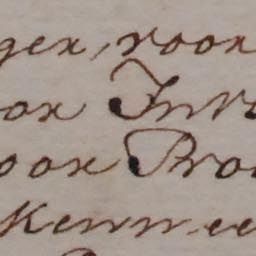 gen, voor
oor Inv
oor Pro
Kenn ee